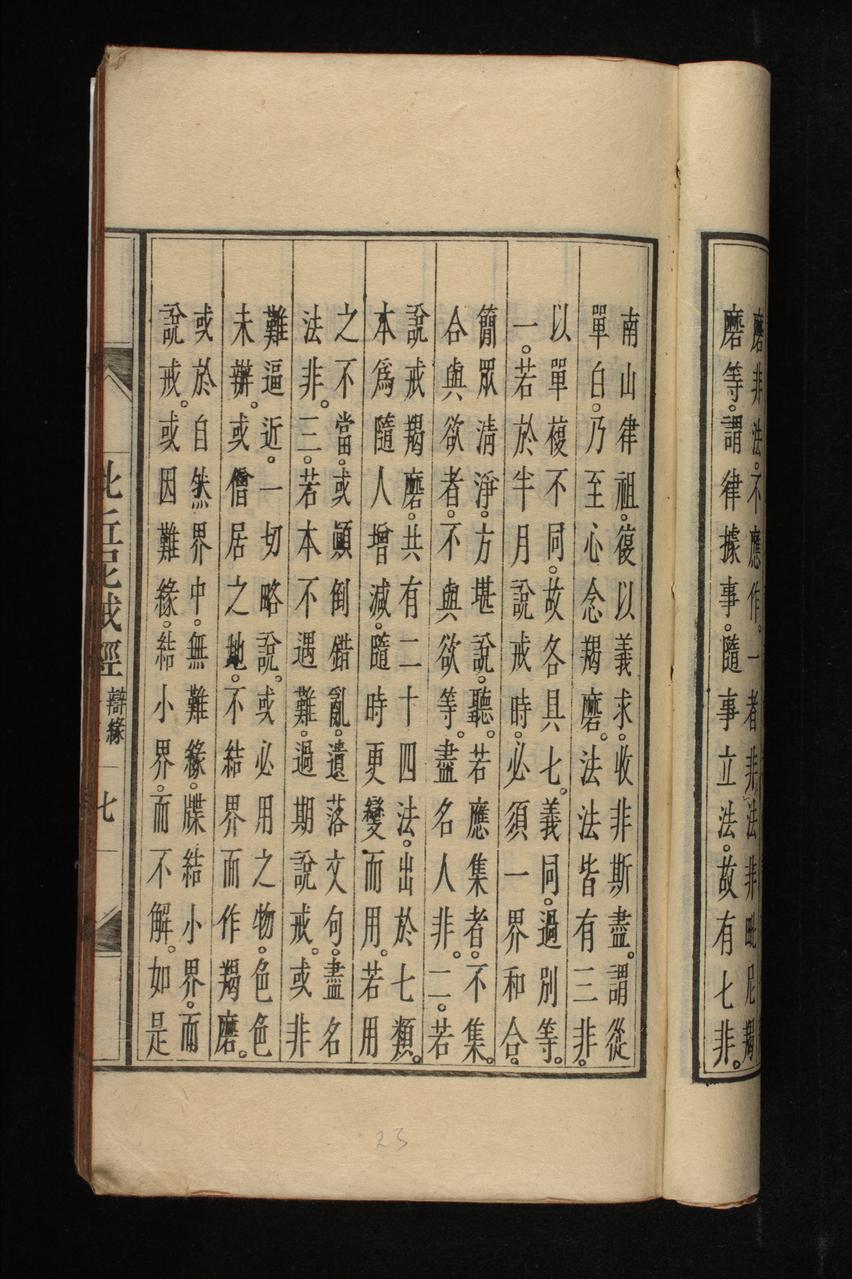 磨非法。不應作。一者非法非毗尼羯
磨等。謂律據事。隨事立法。故有七非。
南山律祖。復以義求。收非斯盡。謂從
單白。乃至心念羯磨。法法皆有三非。
以單複不同。故各具七。義同。過別等。
一。若於半月說戒時。必須一界和合。
簡眾清淨。方堪說。聽。若應集者。不集。
合與欲者。不與欲等。盡名人非。二。若
說戒羯磨。共有二十四法。出於七類。
本為隨人增減。隨時更變而用。若用
之不當。或顛倒錯亂。遺落文句。盡名
法非。三。若本不遇難。過期說戒。或非
難逼近。一切略說。或必用之物。色色
未辦。或僧居之地。不結界而作羯磨。
或於自然界中。無難緣。牒結小界。而
說戒。或因難緣。結小界。而不解。如是
比丘尼戒經 辯緣 七
23